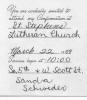 You are cordially invited to
attend my Confirmation at
St. Stephens
Lutheran Church
March 22
service begins at 10:00
So. 5th & W. Scott St.
Sandra
Schroeder